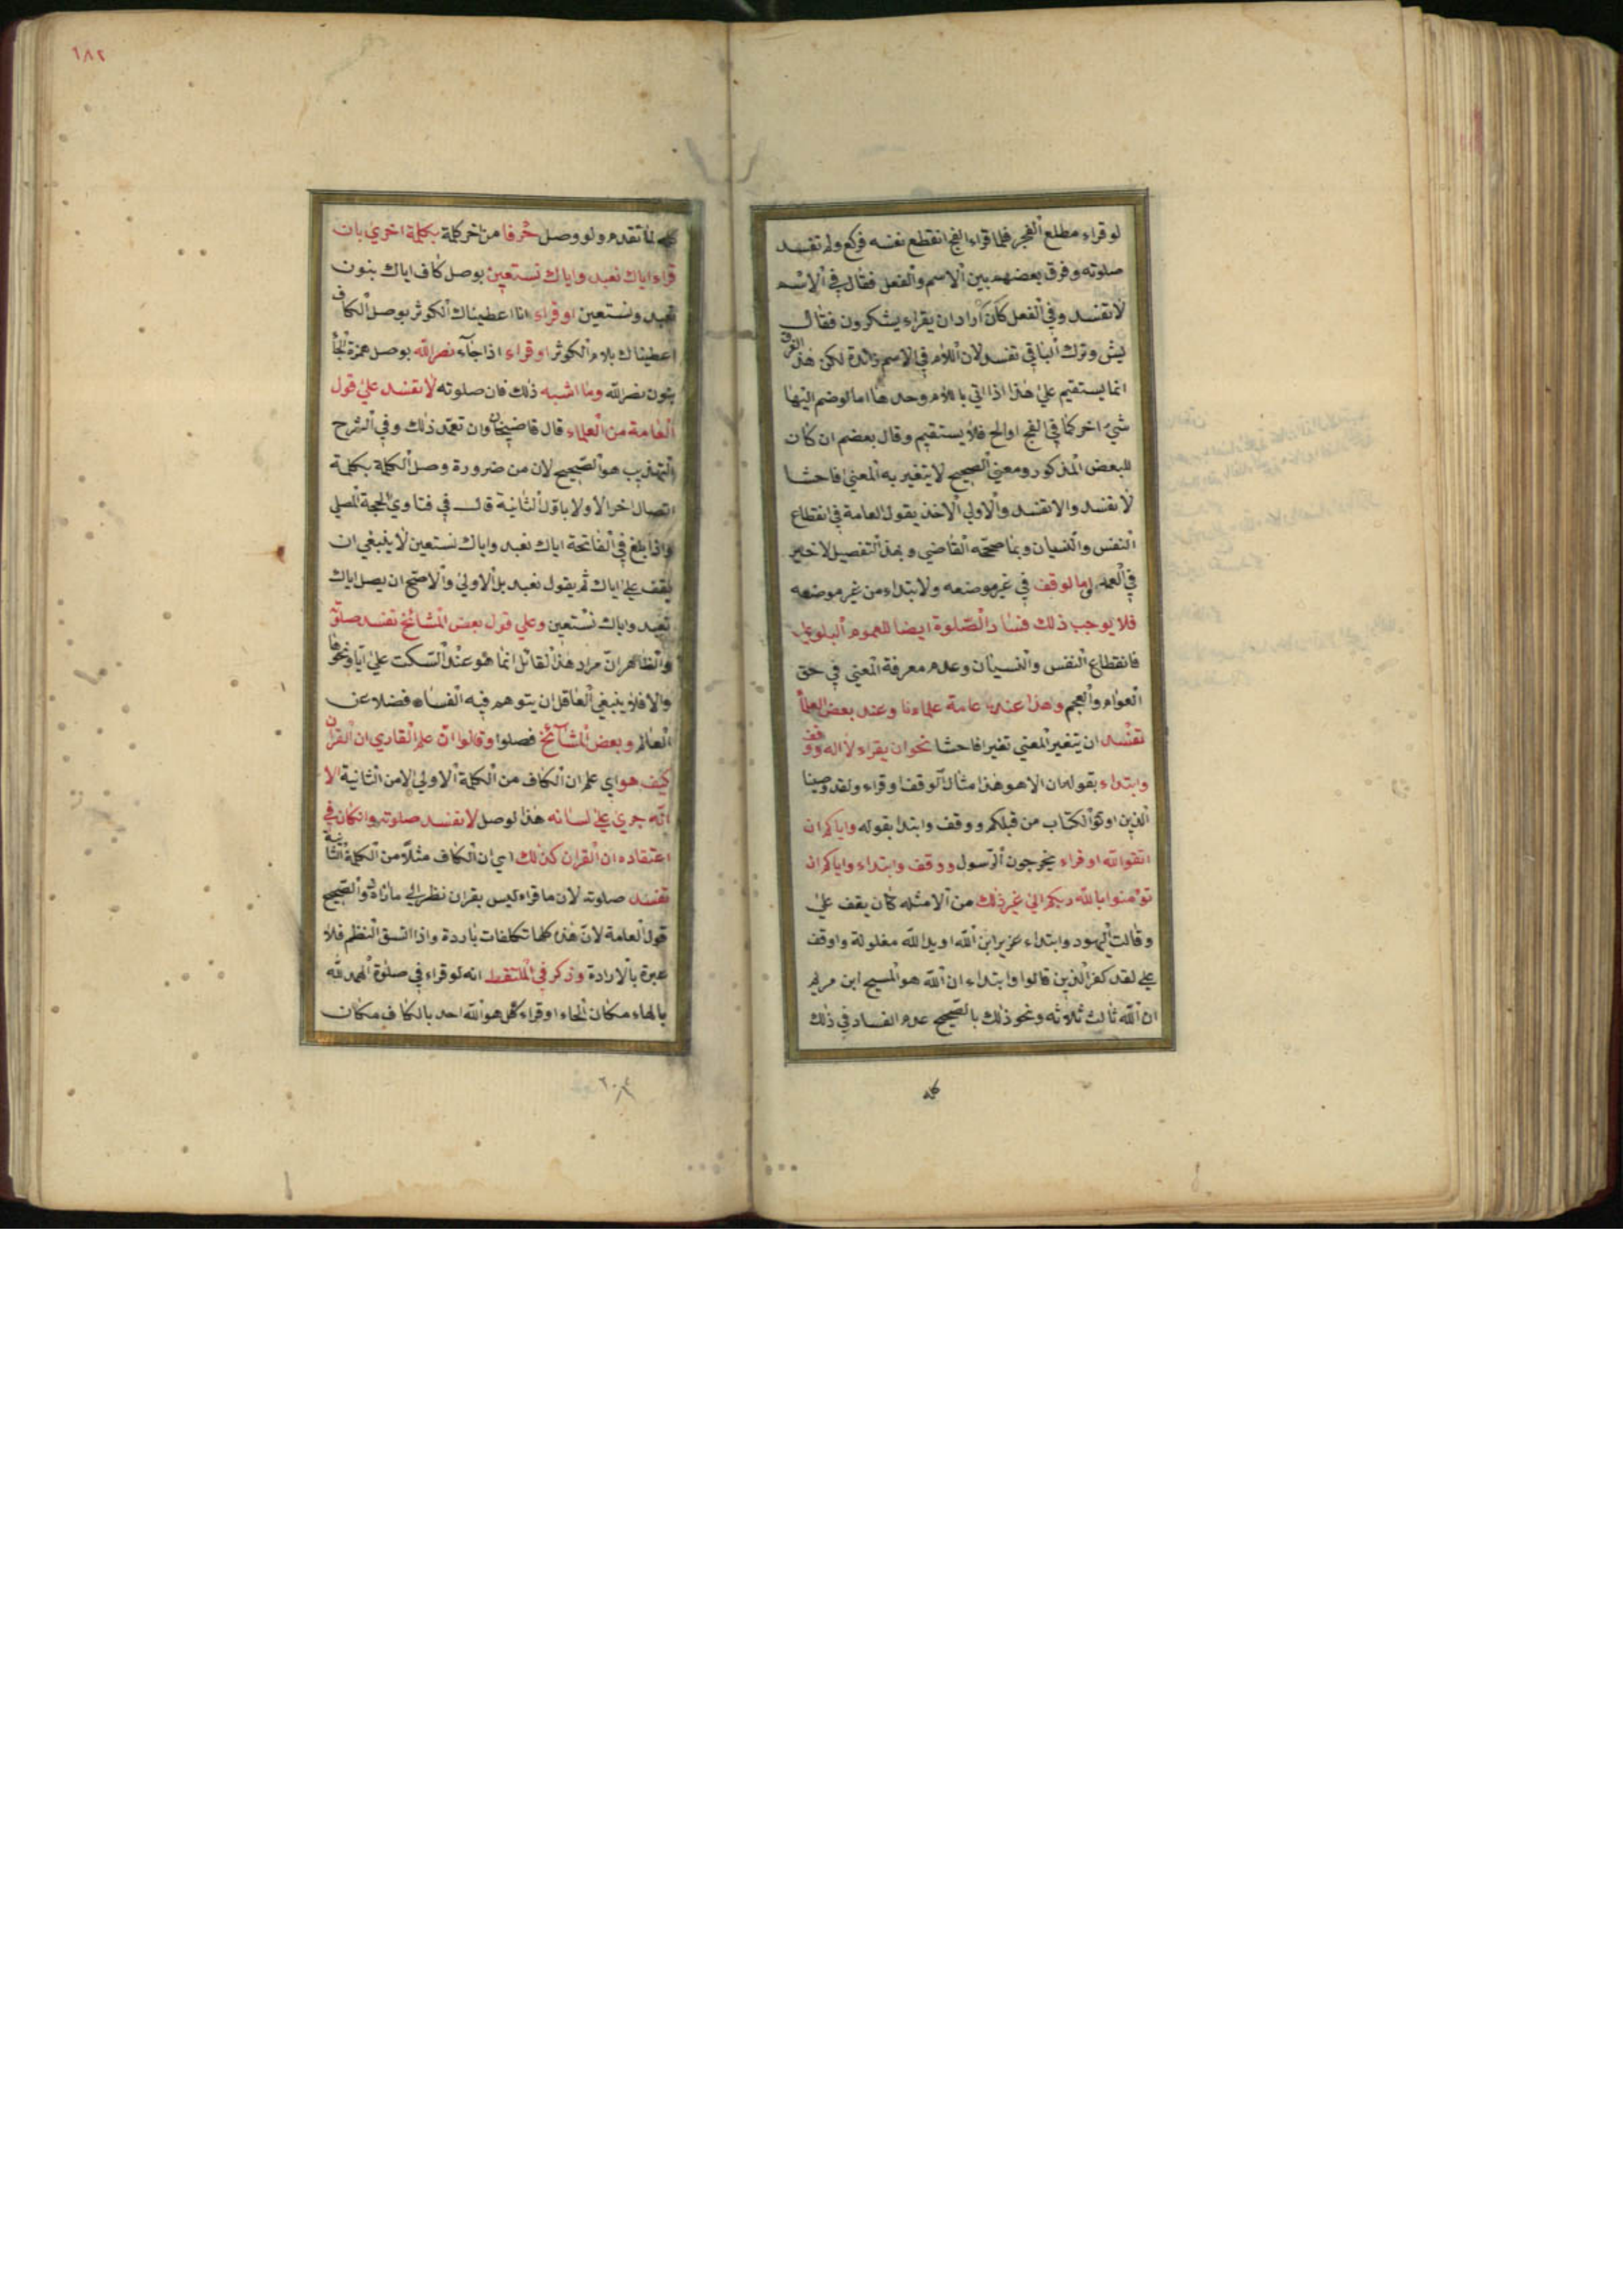 لو قراء مطلع الفجر فلما قراء الفج انقطع نفسه فركع ولم تفسد
صلوته وفرق بعضهم بين الاسم والفعل فقال في الاسم
لا تفسد وفي الفعل كان اراد ان يقراء يشكرون فقال
يش وترك الباقي تفسد لان اللام في الاسم زائدة لكن هذا الفرق
انما يستقيم علي هذا اذا اتي باللام وحدها اما لو ضم اليها
شيء اخر كما في الفج او الح فلا يستقيم وقال بعضهم ان كان
للبعض المذكور ومعني الصحيح لا يتغير به المعني فاحشا
لا تفسد والا تفسد والاولي الاخذ بقول العامة في انقطاع
النفس والنسيان وبما صححه القاضي وبهذا التفصيل الاخير
في العمد اما لو قف في غير موضعه ولابتداء من غير موضعه
فلا يوجب ذلك فساد الصلوة ايضا للعموم البلوي
فانقطاع النفس والنسيان وعدم معرفة المعني في حق
العوام والعجم وهذا عند عامة علماءنا وعند بعض العلما
تفسد ان يتغير المعني تغيرا فاحشا نحو ان يقراء لا اله ووقف
وابتداء بقوله ان الا هو هذا مثال الوقف او قراء ولقد وصينا
الذين اوتوا الكتاب من قبلكم ووقف وابتدا بقوله واياكم ان
اتقوا الله او قراء يخرجون الرسول ووقف وابتداء واياكم ان
تؤمنوا بالله ربكم الي غير ذلك من الامثله كان يقف علي
وقالت اليهود وابتداء عزير ابن الله او يد الله مغلولة او وقف
علي لقد كفر الذين قالوا وابتداء ان الله هو المسيح ابن مريم
ان الله ثالث ثلاثه ونحو ذلك بالصحيح عدم الفساد في ذلك
كله
١٨٢
كله لما تقدم ولو وصل حرفا من اخر كلمة بكلمة اخري بان
قراء اياك نعبد واياك نستعين بوصل كاف اياك بنون
نعبد ونستعين او قراء انا اعطيناك الكوثر بوصل الكاف
اعطيناك بلام الكوثر او قراء اذا جآء نصر الله بوصل همزة الجا
بنون نصر الله وما اشبه ذلك فان صلوته لا تفسد علي قول
العامة من العلماء قال قاضيخان وان تعمد ذلك وفي الشرح
التهذيب هو الصحيح لان من ضرورة وصل الكلمة بكلمة
اتصال اخر الاولا باول الثانية قال في فتاوي الحجة المصلي
واذا بلغ في الفاتحة اياك نعبد واياك نستعين لا ينبغي ان
يقف علي اياك ثم يقول نعبد بل الاولي والاصح ان يصل اياك
نعبد واياك نستعين وعلي قول بعض المشائخ تفسد صلوته
والظاهر ان مراد هذا القائل انما هو عند السكت علي ايا ونحوها
والا فلا ينبغي العاقل ان يتوهم فيه الفساد فضلا عن
العالم وبعض المشآئخ فصلوا وقالوا ان علم القاري ان القران
كيف هو اي علم ان الكاف من الكلمة الاولي لا من الثانية الا
انه جري علي لسانه هذا لوصل لا تفسد صلوته وان كان في
اعتقاده ان القران كذلك اي ان الكاف مثلا من الكلمة الثانية
تفسد صلوته لان ما قراء ليس بقران نظر الي ما اراده والصحيح
قول العامة لان هذه كلها تكلفات باردة واذا اتسق النظم فلا
عبرة بالارادة وذكر في الملتقط انه لو قراء في صلوة الهمد لله
بالهاء مكان الحاء او قراء كل هو الله احد بالكاف مكان